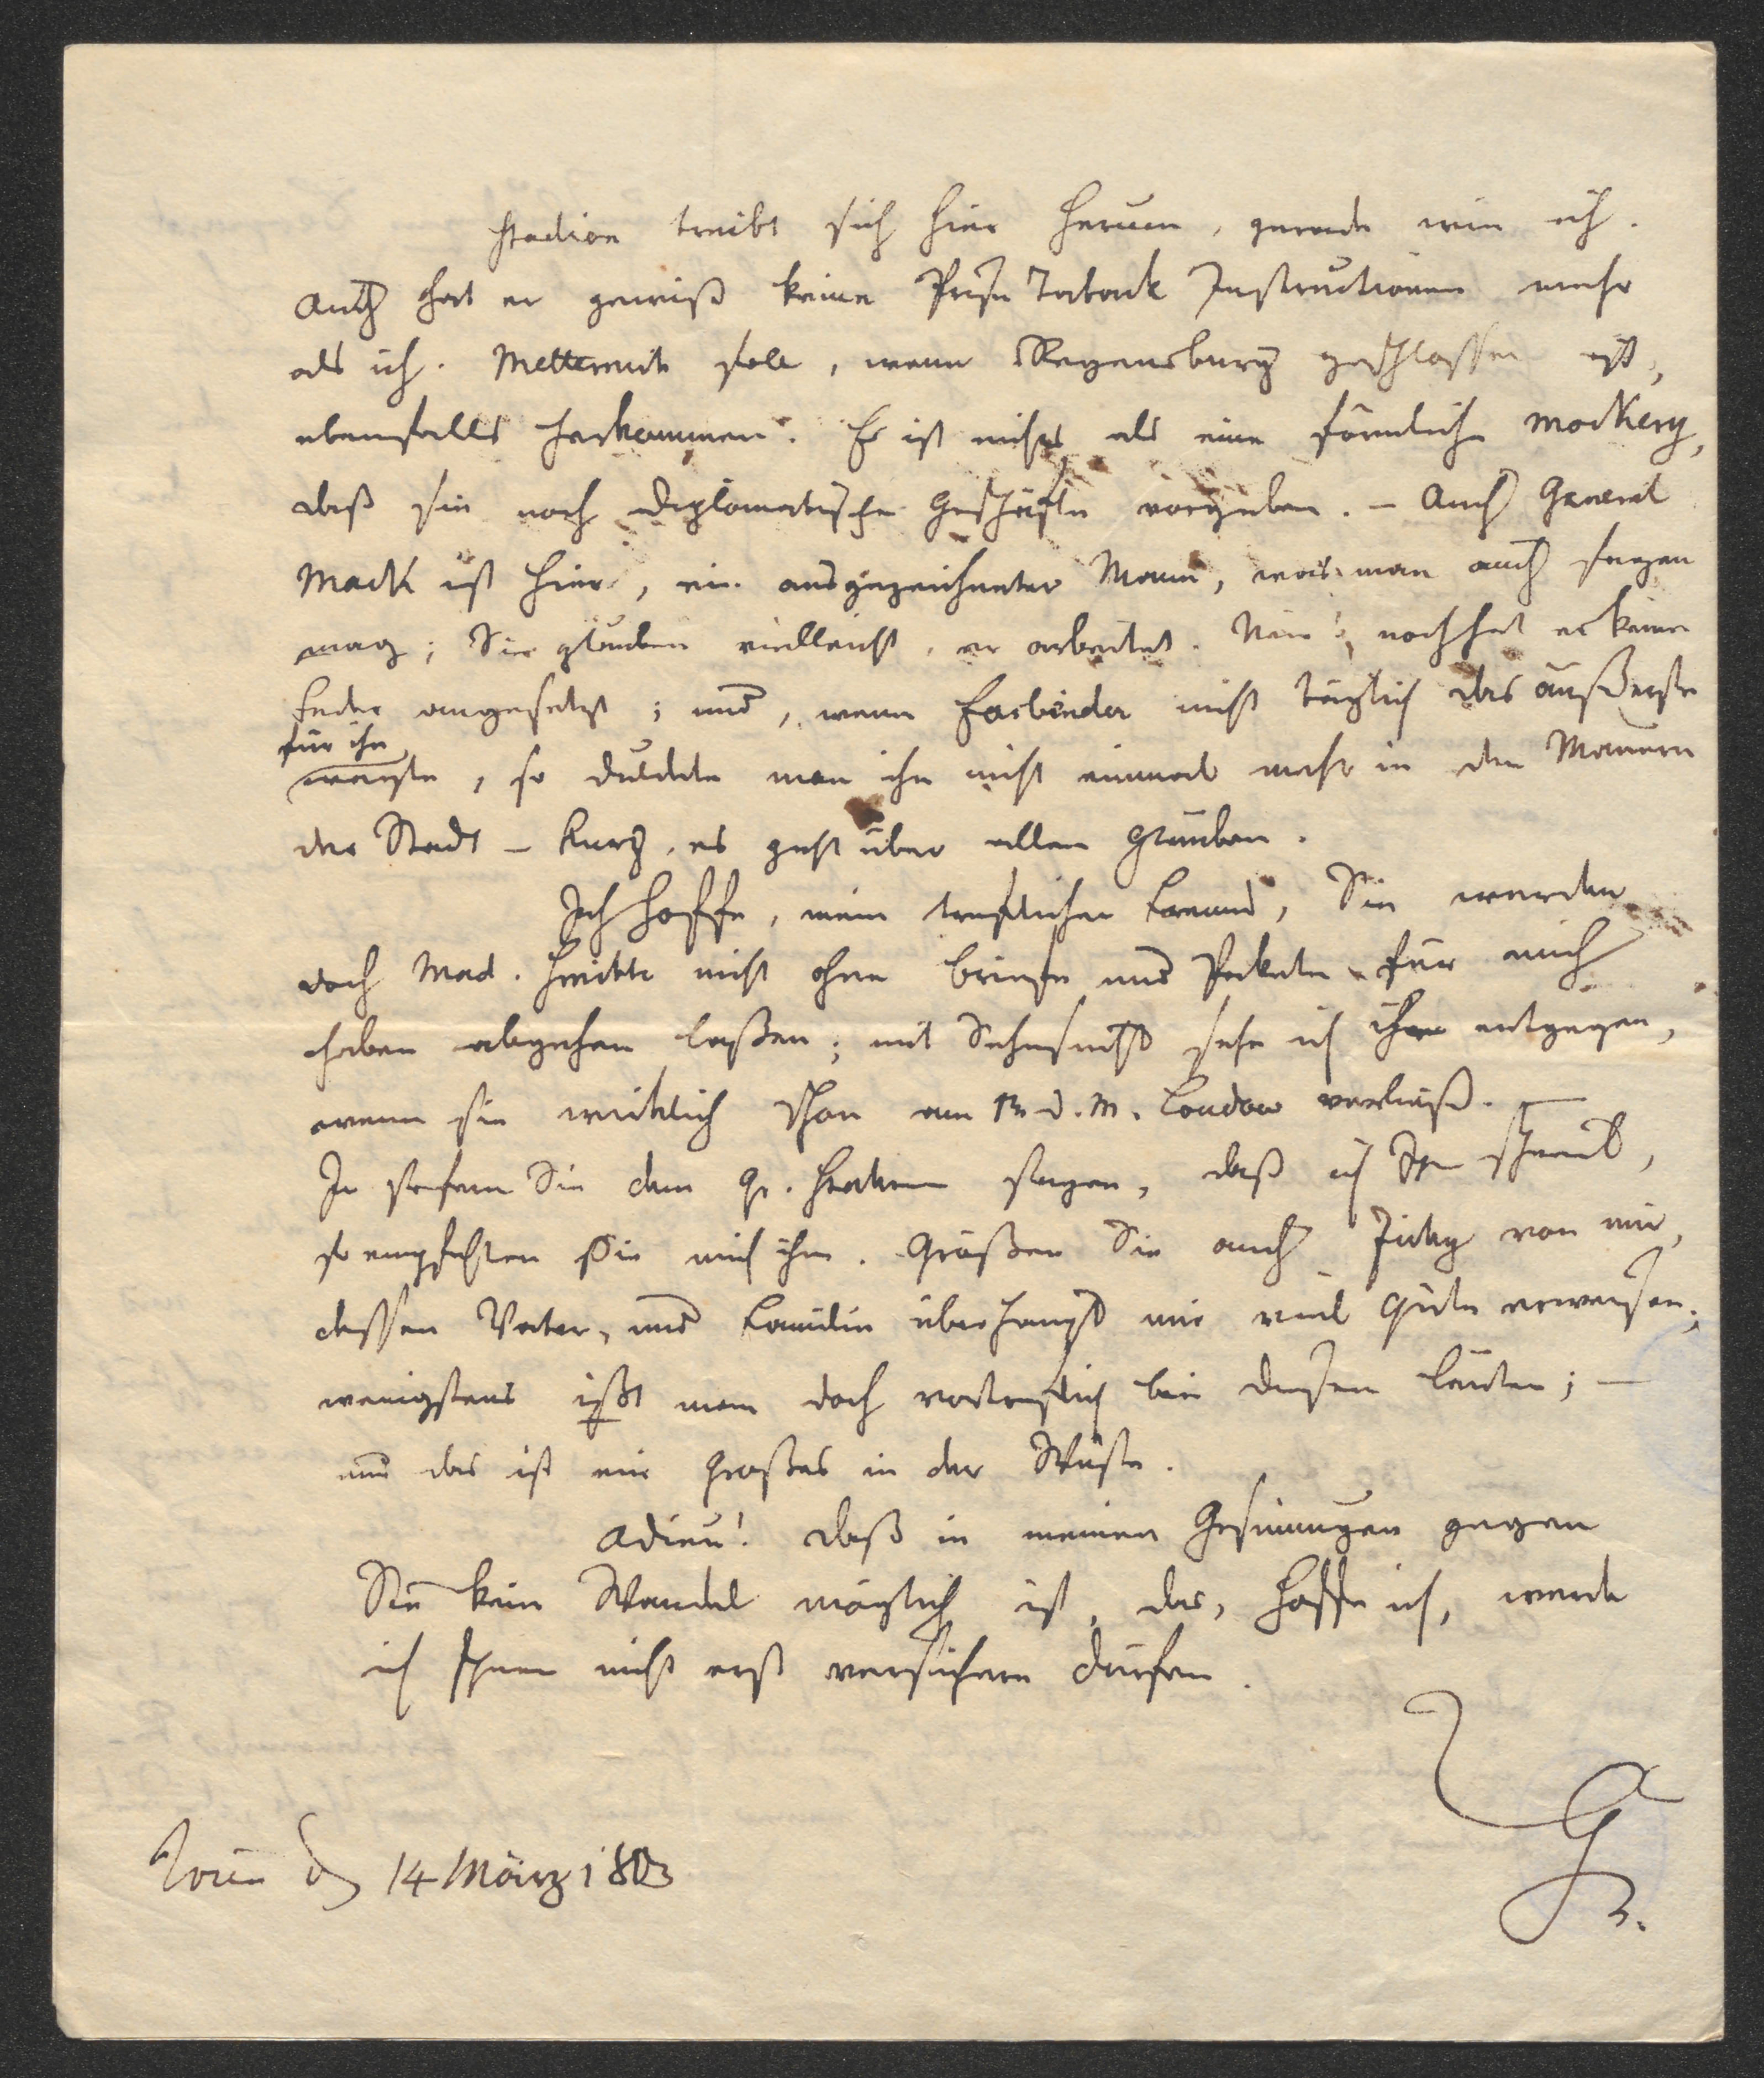 Stadion treibt sich hier herum, gerade wie ich.
Auch hat er gewiß keine Prise Taback Instructionen mehr
als ich. Metternich soll, wenn Regensburg geschlossen ist,
ebenfalls herkommen. Es ist nichts als eine förmliche mockery,
daß sie noch diplomatische Geschäfte vorgeben. – Auch General
Mack ist hier, ein ausgezeichneter Mann, was man auch sagen
mag; Sie glauben vielleicht, er arbeitet. Nein! noch hat er keine
Feder angesetzt; und, wenn Fasbinder nicht täglich das äußerste
für ihn
wagte, so duldete man ihn nicht einmal mehr in den Mauern
der Stadt – Kurz, es geht über allen Glauben.
Ich hoffe, mein treflicher Freund, Sie werden
doch Mad. nicht ohne Briefe und Pakete für mich
haben abgehen laßen; mit Sehnsucht sehe ich ihr entgegen,
wenn sie wirklich schon am d. M. London verließ. —
In sofern Sie dem Gr. Stadion sagen, daß ich Ihnen schrieb,
so empfehlen Sie mich ihm. Grüßen Sie auch Zichy von mir,
dessen Vater, und Familie überhaupt mir viel Güte erweisen;
wenigstens ißt man doch vortreflich bei diesen Leuten; —
und das ist ein Großes in der Wüste.
Adieu! Daß in meinen Gesinnungen gegen
Sie kein Wandel möglich ist, das, hoffe ich, werde
ich Ihnen nicht erst versichern dürfen.
G
Wien d 14 März 1803